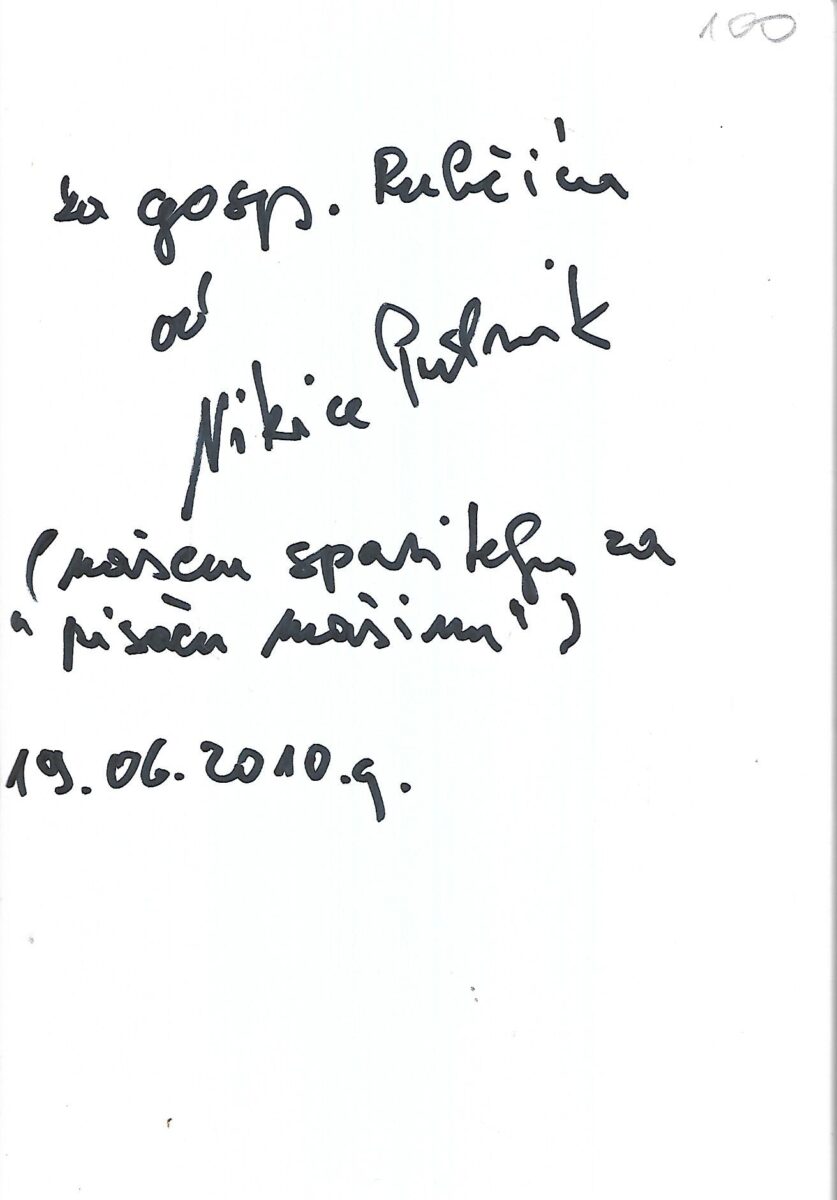 100
za gosp. Rubčića
od
Nikice Putnik
(našem spasitelju za
"pisaću mašinu")
19.06.2010.g.